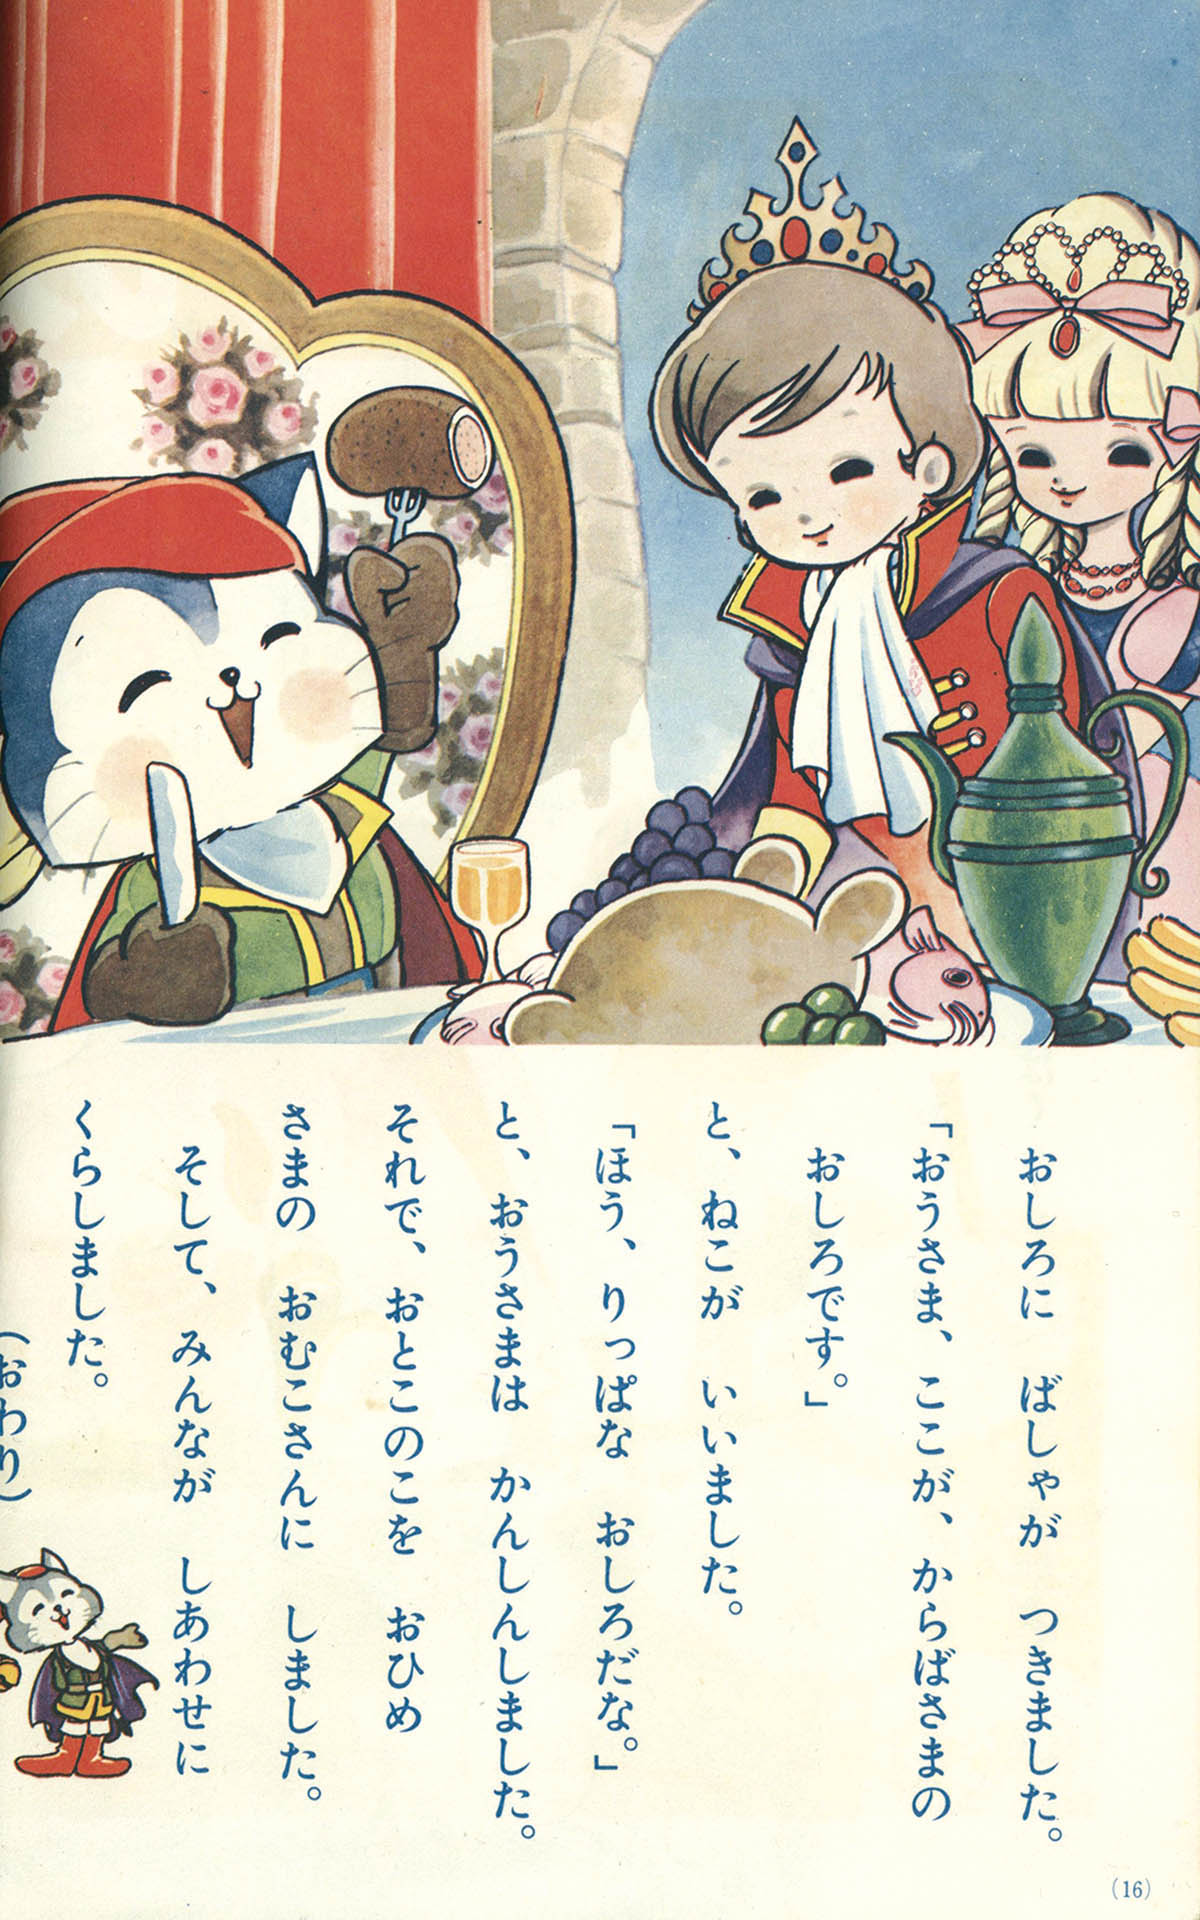 おしろに　ばしゃが　つきました。
「おうさま、ここが、からばさまの
おしろです。」
と、ねこが　いいました。
「ほう、りっぱな　おしろだな。」
と、おうさまは　かんしんしました。
それで、おとこのこを　おひめ
さまの　おむこさんに　しました。
そして、みんなが　しあわせに
くらしました。
（おわり）
(16)